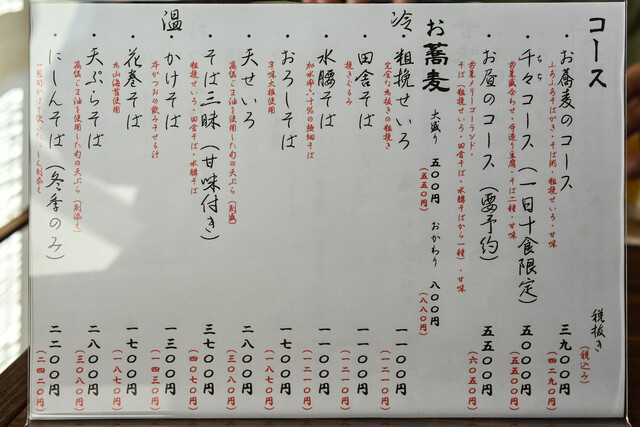 コース
税抜き
(税込み)
・お蕎麦のコース 三九〇〇円
ふろふきそばがき・そば粥・粗挽せいろ・甘味 (四二九〇円)
・千々コース(一日十食限定) 五〇〇〇円
お菜盛合わせ・手造り豆腐・そば二種・甘味 (五五〇〇円)
・お昼のコース(要予約) 五五〇〇円
お菜メリーゴーランド・
そば(粗挽せいろ・田舎そば・水腰そばから一種)・甘味 (六〇五〇円)
お蕎麦 大盛り 五〇〇円 おかわり 八〇〇円
(五五〇円) (八八〇円)
冷
・粗挽せいろ 一一〇〇円
完全な丸抜きの粗挽き (一二一〇円)
・田舎そば 一一〇〇円
挽きぐるみ (一二一〇円)
・水腰そば 一一〇〇円
加水率・十％の極細そば (一二一〇円)
・おろしそば 一七〇〇円
辛味大根使用 (一八七〇円)
・天せいろ 二八〇〇円
高価ごま油を使用した旬の天ぷら(別盛) (三〇八〇円)
・そば三昧(甘味付き) 三七〇〇円
粗挽せいろ・田舎そば・水腰そば (四〇七〇円)
温
・かけそば 一三〇〇円
本かつおの飲み干せる汁 (一四三〇円)
・花巻そば 一七〇〇円
丸山海苔使用 (一八七〇円)
・天ぷらそば 二八〇〇円
高価ごま油を使用した旬の天ぷら(別添え) (三〇八〇円)
・にしんそば(冬季のみ) 二二〇〇円
(二四二〇円)